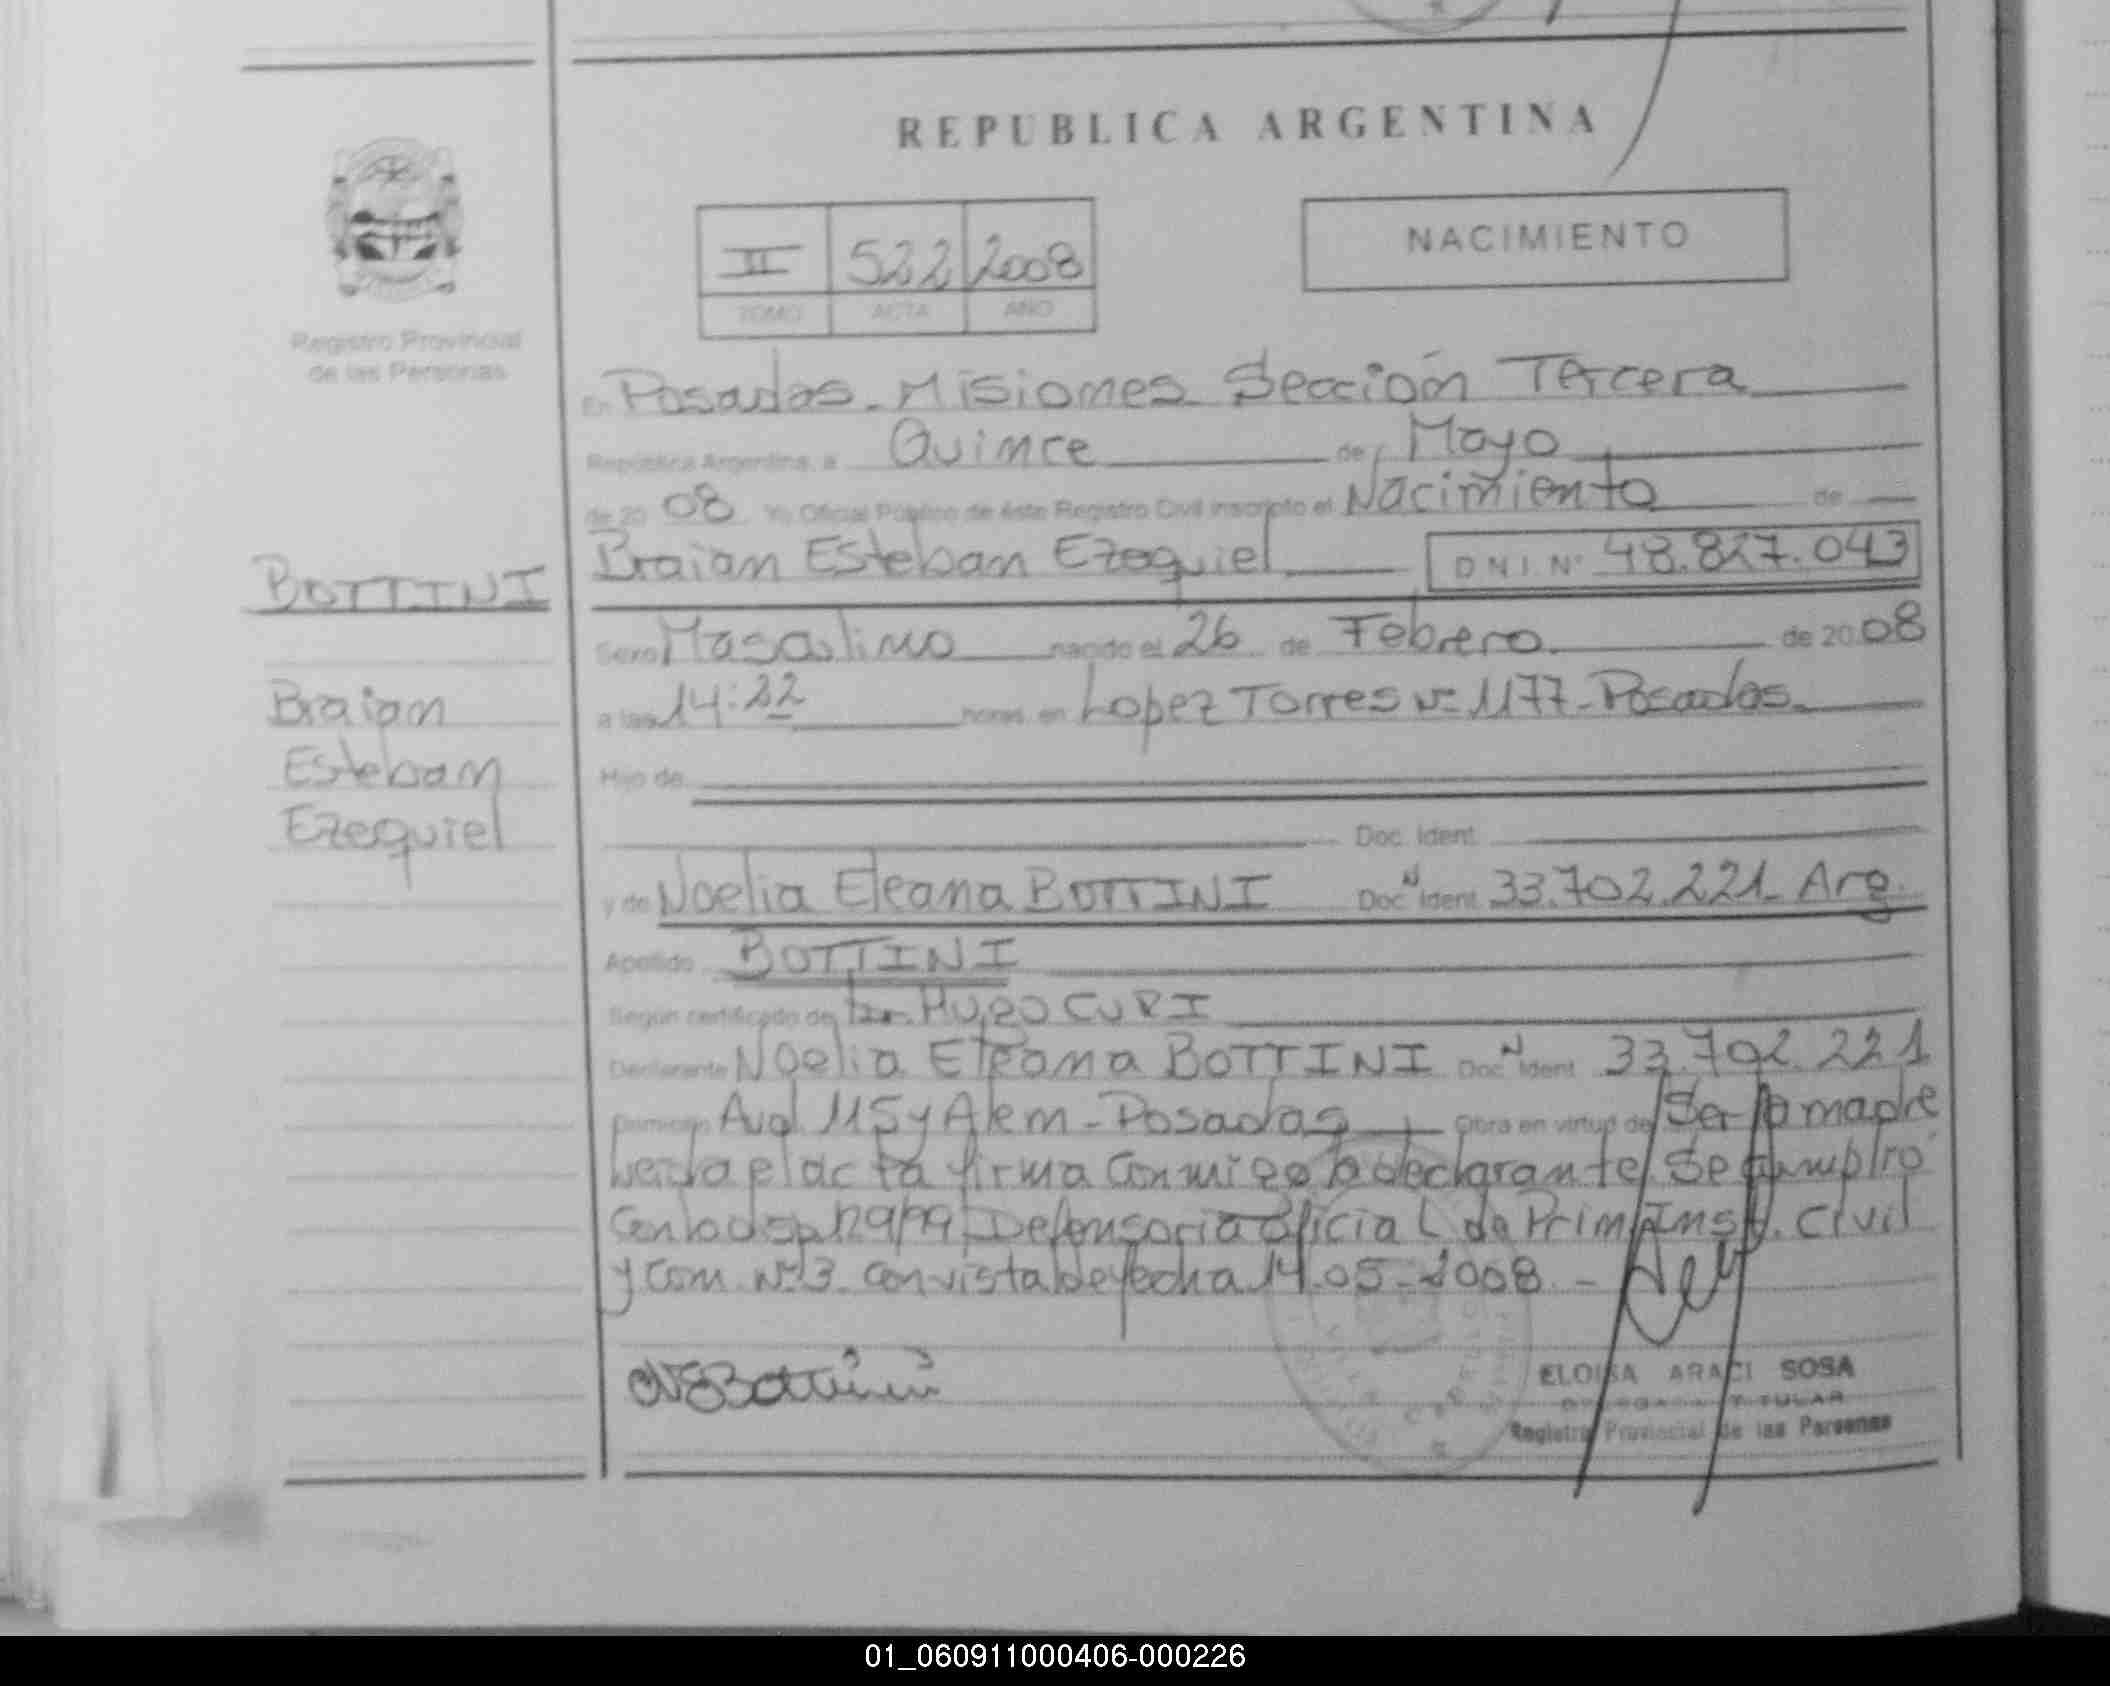 REPUBLICA ARGENTINA
II 522 2008
TOMO ACTA AÑO
NACIMIENTO
Registro Provincial
de las Personas
En Posadas - Misiones Sección Tercera
República Argentina, a Quince de Mayo
de 20 08 Yo Oficial Público de éste Registro Civil inscripto el Nacimiento de
BOTTINI
Braian Esteban Ezequiel D N I. N° 48.827.043
Sexo Masculino nacido el 26 de Febrero de 20 08
Braian
Esteban
Ezequiel
a las 14:22 horas en Lopez Torres N° 1177 - Posadas
Hijo de
Doc. Ident.
y de Noelia Eleana BOTTINI Doc N Ident 33.702.221 Arg.
Apellido BOTTINI
Según certificado de Dr. HUGO CURI
Declarante Noelia Eleana BOTTINI Doc N Ident 33.702.221
Domicilio Avd. 115 y Alem - Posadas Obra en virtud de Ser la madre
Leida el acta firma conmigo la declarante Se cumplió
con la disp 129/99 Defensoria Oficial de Prim Inst. Civil
y Com. N° 3 con vista de fecha 14.05.2008 -
NEBottini
ELOISA ARACI SOSA
DELEGADA TITULAR
Registro Provincial de las Personas
01_060911000406-000226